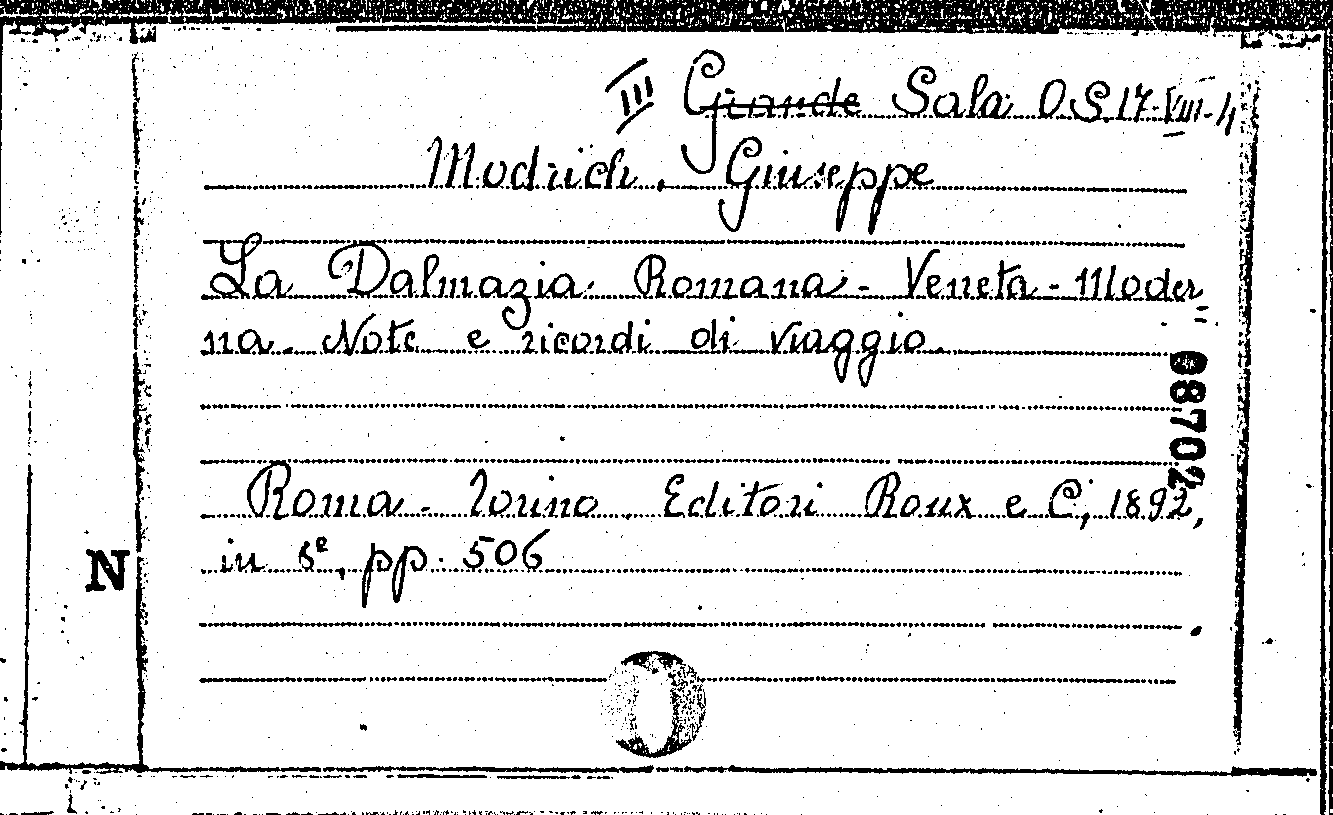 III Grande Sala O.S.17-VIII-4
Modrich, Giuseppe
La Dalmazia. Romana - Veneta - Moder=
na. Note e ricordi di viaggio.
08702
Roma - Torino. Editori Roux e C., 1892,
in 8º, pp. 506
N